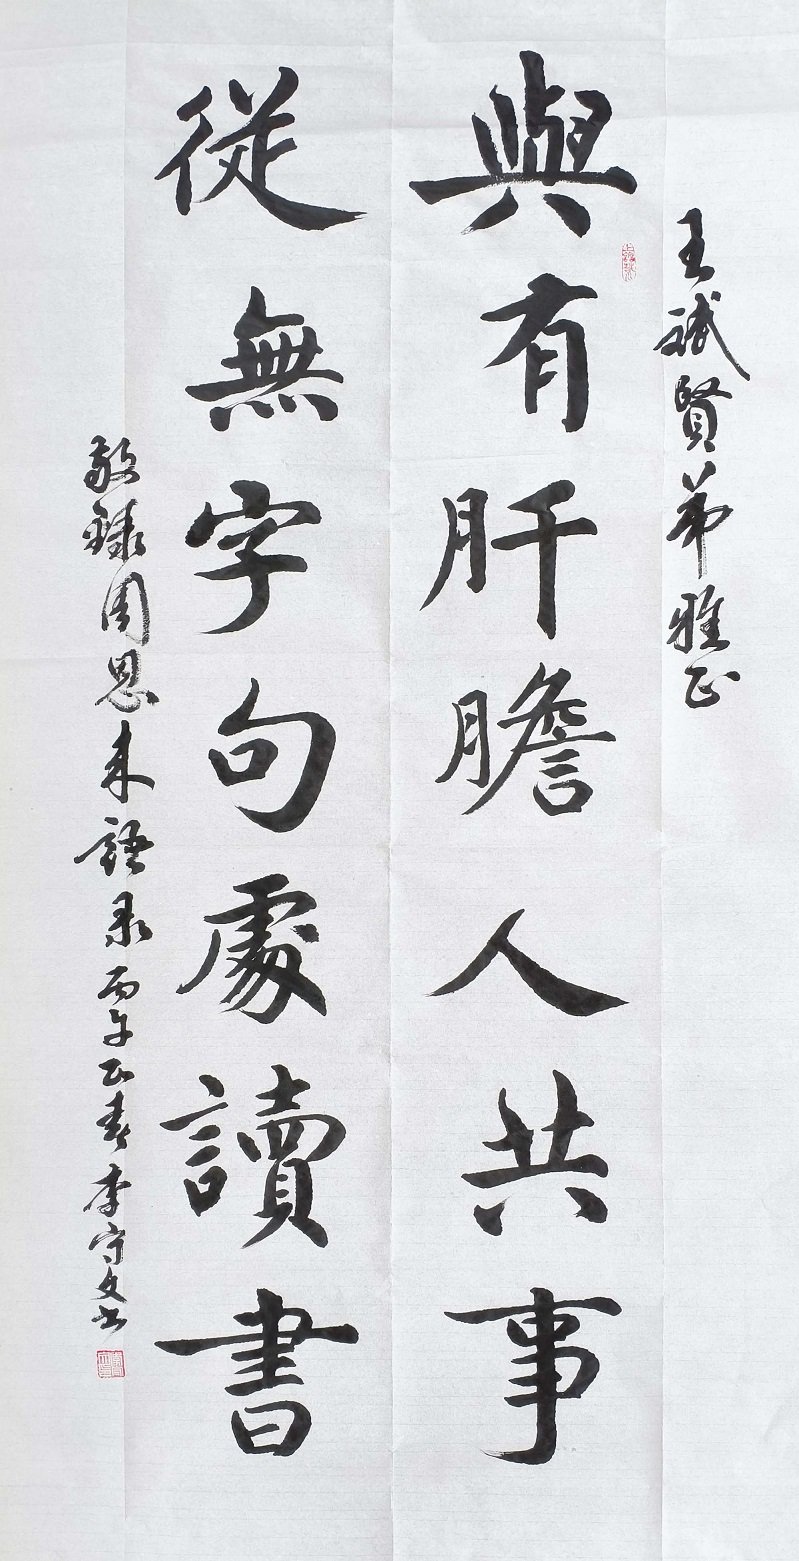 王斌賢弟雅正
與有肝膽人共事
從無字句處讀書
敬録周恩来語录丙午正春李守文书